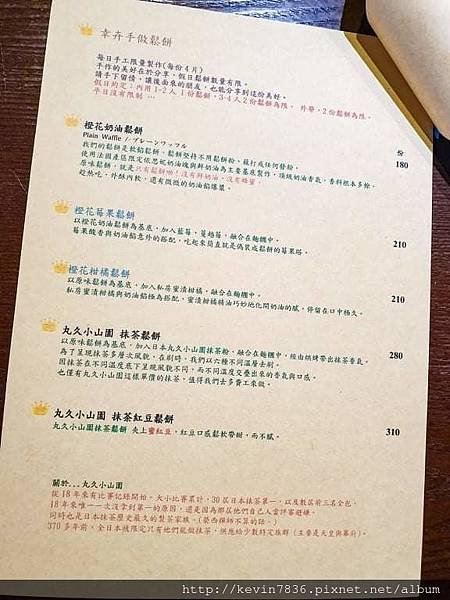 幸卉手做鬆餅
每日手工限量製作(每份4片)
手作的美好在於分享，假日鬆餅數量有限。
請手下留情，讓後面來的朋友，也能分享到這份美好。
假日約定：內用1-2人 1份鬆餅，3-4人2份鬆餅為限。 外帶，2份鬆餅為限。
平日沒有限制 ...
橙花奶油鬆餅
份
Plain Waffle / プレーンワッフル
180
我們的鬆餅是軟餡鬆餅。鬆餅堅持不用鬆餅粉、蘇打或任何發粉。
使用法國產區限定依思妮奶油塊與鮮奶油為主要基底製作，頂級奶油香氣、香料根本多餘。
原味鬆餅，就是只有鬆餅喲！沒有鮮奶油，沒有蜂蜜。
趁熱吃，外酥內軟，還有微微的奶油餡爆漿。
橙花莓果鬆餅
以橙花奶油鬆餅為基底，加入藍莓、蔓越莓，融合在麵糰中。
210
莓果酸香與奶油餡意外的搭配，吃起來簡直就是偽裝成鬆餅的莓果塔。
橙花柑橘鬆餅
以原味鬆餅為基底，加入私房蜜漬柑橘，融合在麵糰中。
210
私房蜜漬柑橘與奶油餡極為搭配，蜜漬柑橘精油巧妙地化開奶油的膩，停留在口中極久。
丸久小山園 抹茶鬆餅
以原味鬆餅為基底，加入日本丸久小山園抹茶粉，融合在麵糰中，經由烘烤帶出抹茶香氣。
280
為了呈現抹茶多層次風貌，在刷時，我們以六種不同溫層去刷。
因抹茶在不同溫度底下呈現風貌不同，而不同溫度交疊出來的香氣與口感。
也僅有丸久小山園這樣單價的抹茶，值得我們去多費工來做。
丸久小山園 抹茶紅豆鬆餅
丸久小山園抹茶鬆餅 夾上蜜紅豆，紅豆口感鬆軟帶甜，而不膩。
310
關於...丸久小山園
從18年來有比賽記錄開始，大小比賽累計，30屆日本抹茶第一，以及數屆前三名全包。
18年來唯一一次沒拿到第一的原因，還是因為那屆他們自己人當評審避嫌。
同時也是日本抹茶歷史最久的製茶家族。(榮西禪師不算的話。)
370多年前，全日本被限定只有他們能做抹茶，供應給少數特定族群 (主要是天皇與幕府)。
http://kevin7836.pixnet.net/album